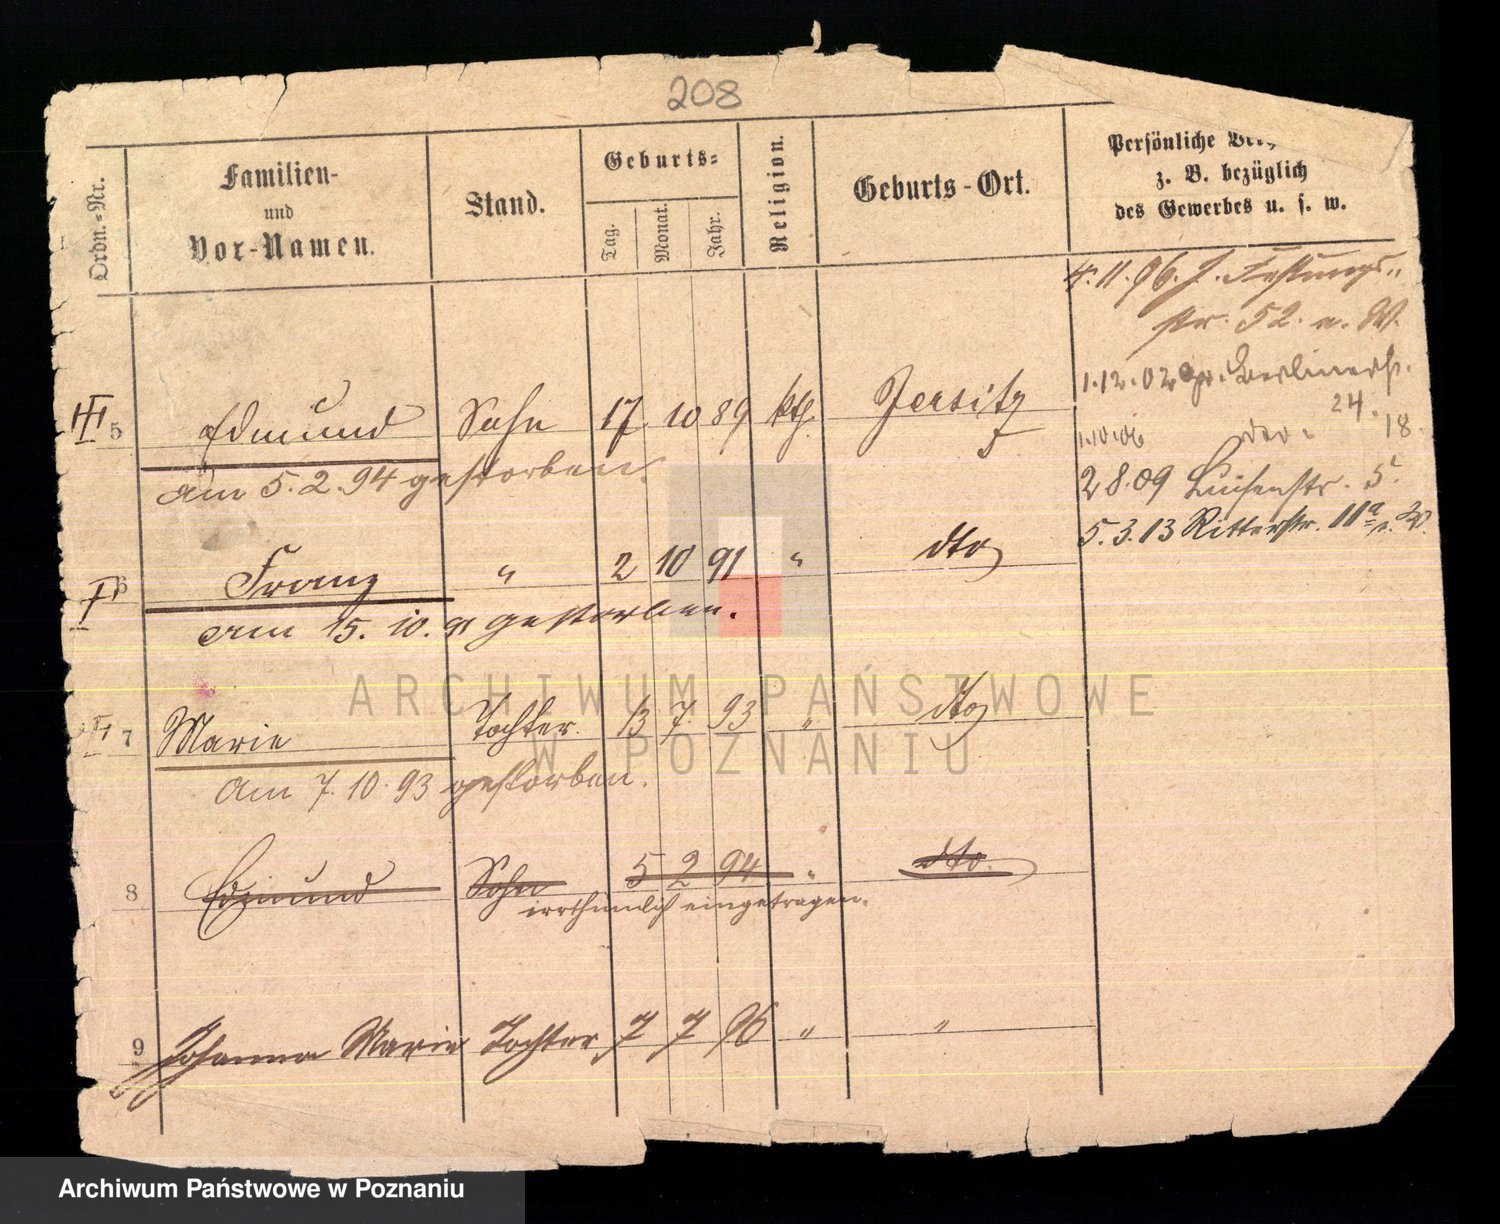 208
Ordn.-Nr.
Familien-
und
Vor-Namen.
Stand.
Geburts-
Tag.
Monat.
Jahr.
Religion.
Geburts-Ort.
Persönliche
z. B. bezüglich
des Gewerbes u. s. w.
4.11.96. J. Festungs-
str. 52. u. W.
1.12.02 gr. Berlinerstr.
24.
1.10.06 18.
2.8.09 Luisenstr. 5.
5.3.13 Ritterstr. 11a u. W.
III 5 Edmund Sohn 17 10 89 kth. Jersitz
am 5.2.94 gestorben.
I 6 Franz " 2 10 91 " dto
am 15.10.91 gestorben.
III 7 Marie Tochter. 13 7. 93 " dto
am 7.10.93 gestorben.
8 Edmund Sohn 5 2 94 " dto.
irrthümlich eingetragen.
9 Johanna Marie Tochter 7 7 96 " "
ARCHIWUM PAŃSTWOWE
W POZNANIU
Archiwum Państwowe w Poznaniu